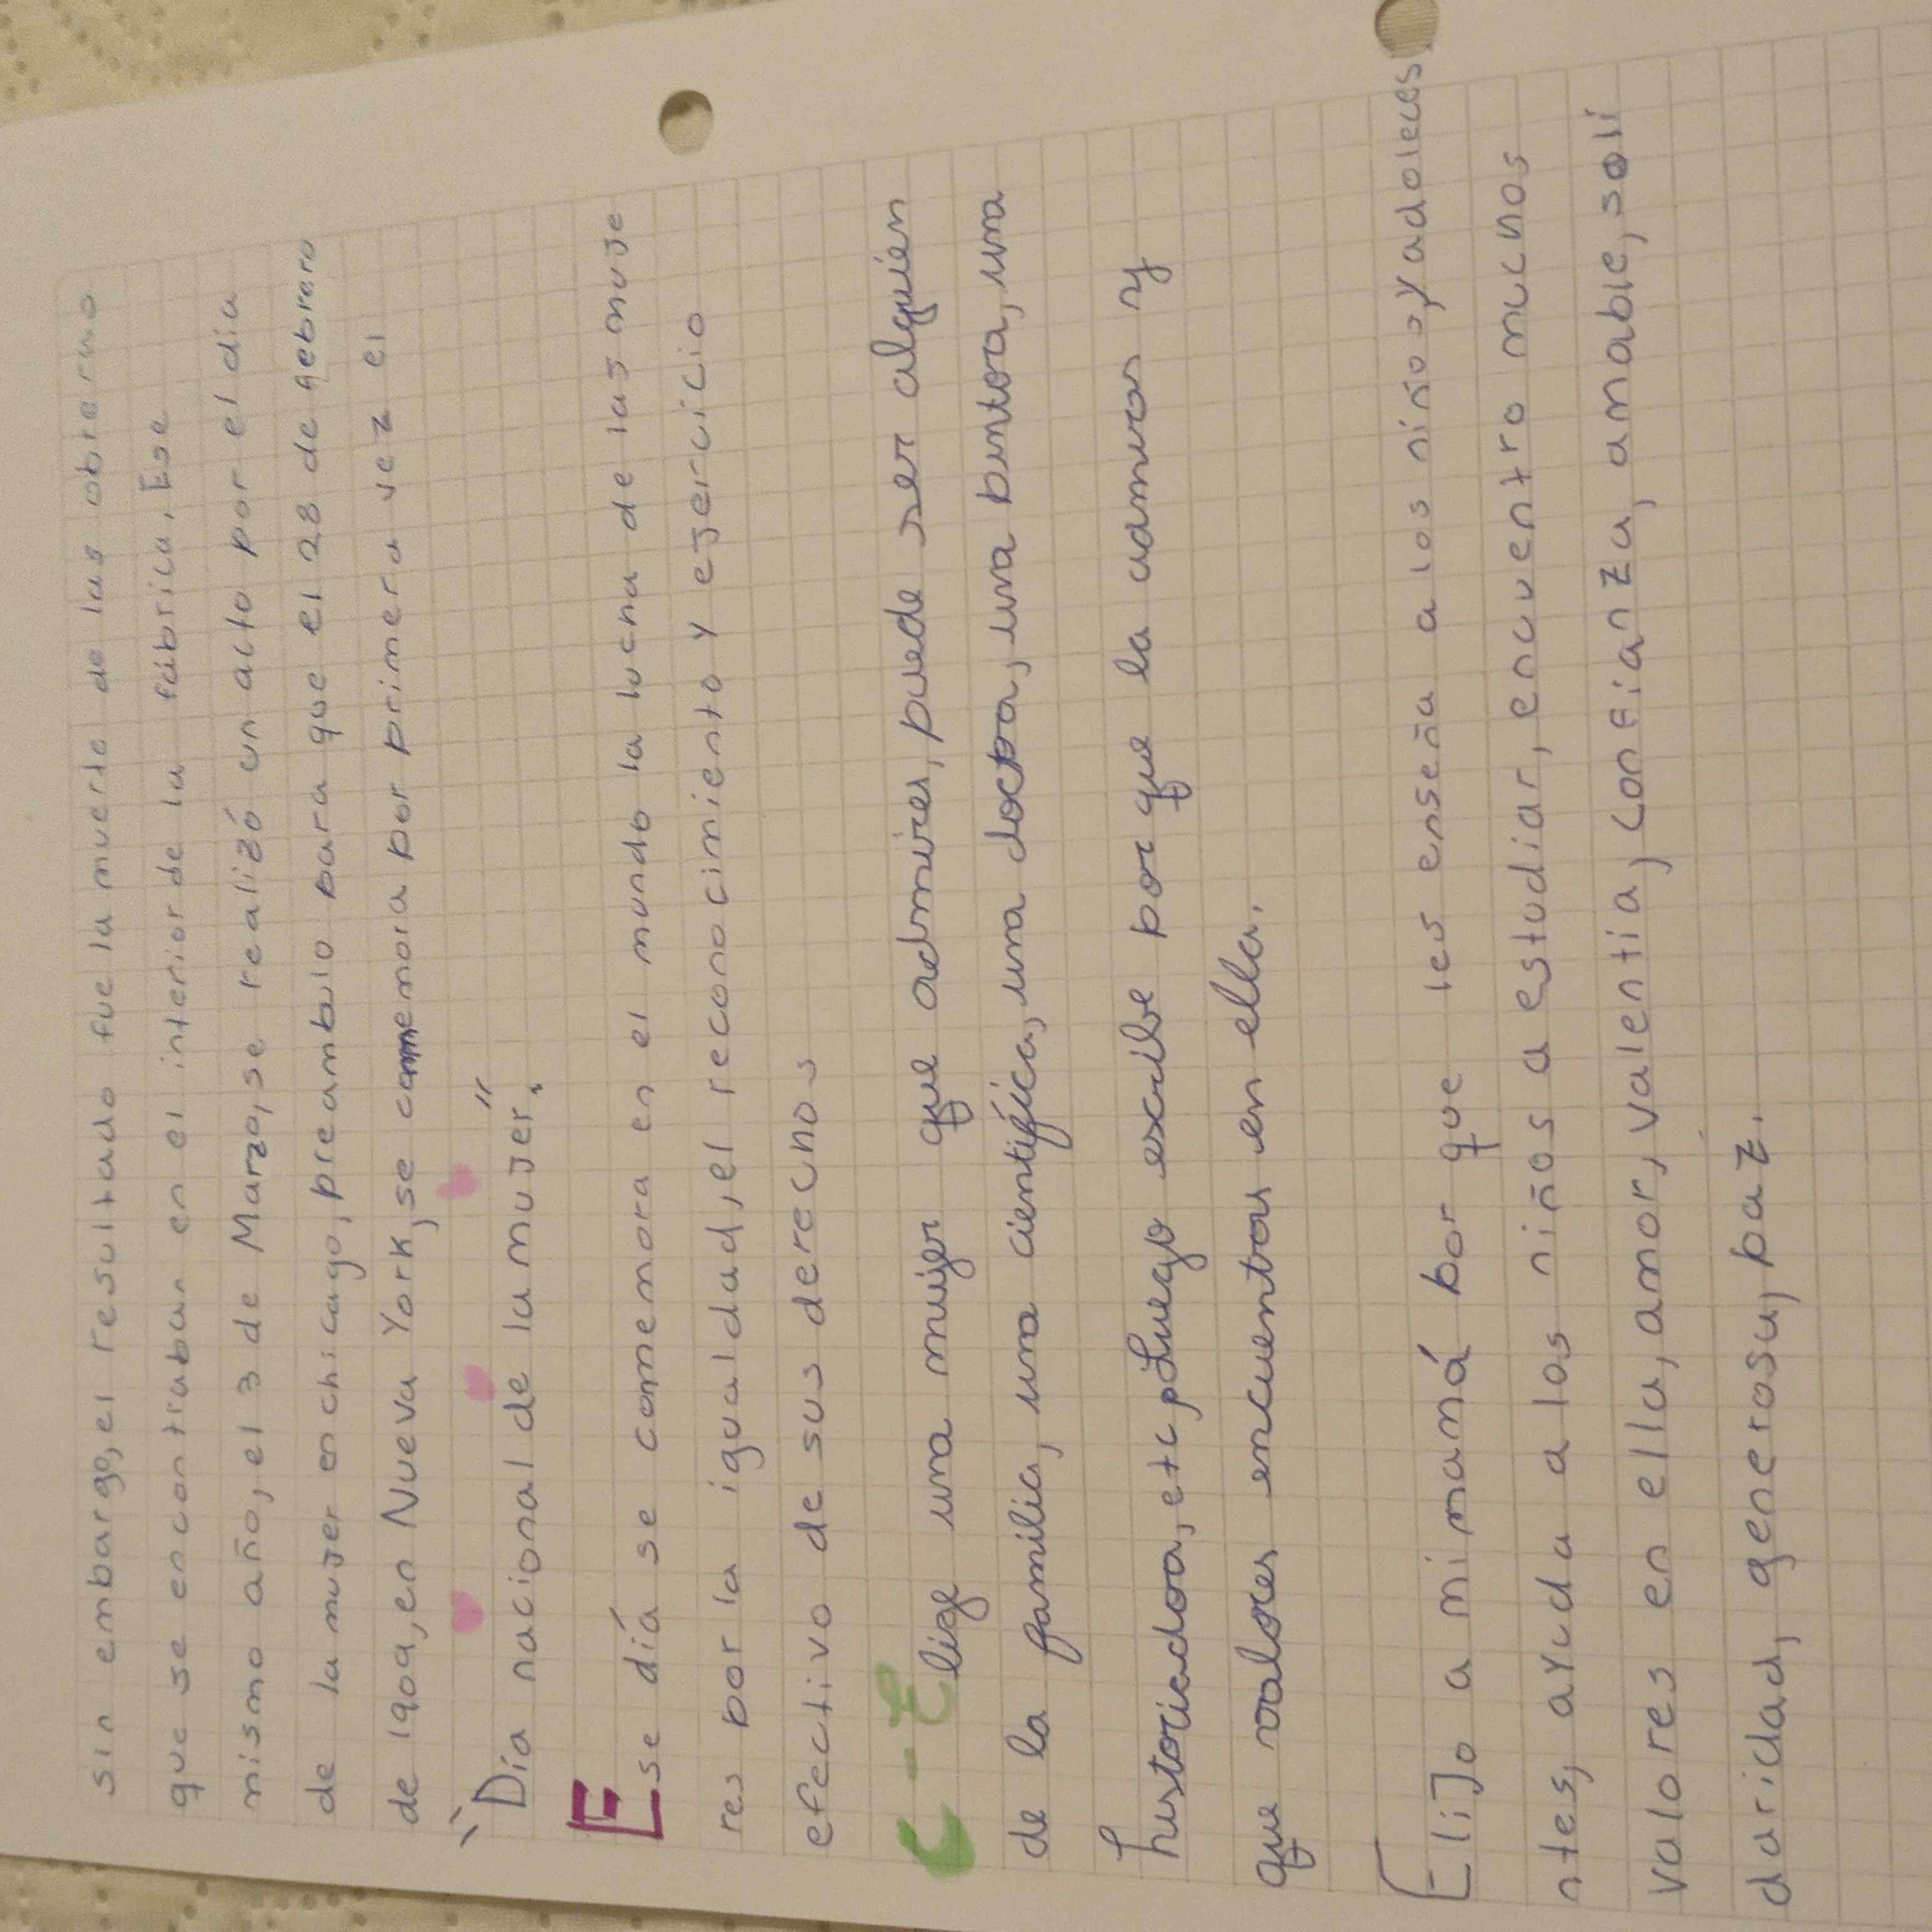 sin embargo, el resultado fue la muerte de las obreras
que se encontraban en el interior de la fábrica, Ese
mismo año, el 3 de Marzo, se realizó un acto por el día
de la mujer en chicago, preambulo para que el 28 de febrero
de 1909, en Nueva York, se conmemora por primera vez el
"Día nacional de la mujer".
Ese día se comemora en el mundo la lucha de las muje
res por la igualdad, el reconocimiento y ejercicio
efectivo de sus derechos
C-Elige una mujer que admires, puede ser alguien
de la familia, una científica, una doctora, una pintora, una
historiadora, etc, Luego escribe por que la admiras y
que valores encuentras en ella.
Elijo a mi mamá por que les enseña a los niños, y adolecs
ntes, ayuda a los niños a estudiar, encuentro muchos
valores en ella, amor, valentia, confianza, amable, soli
daridad, generosa, paz.